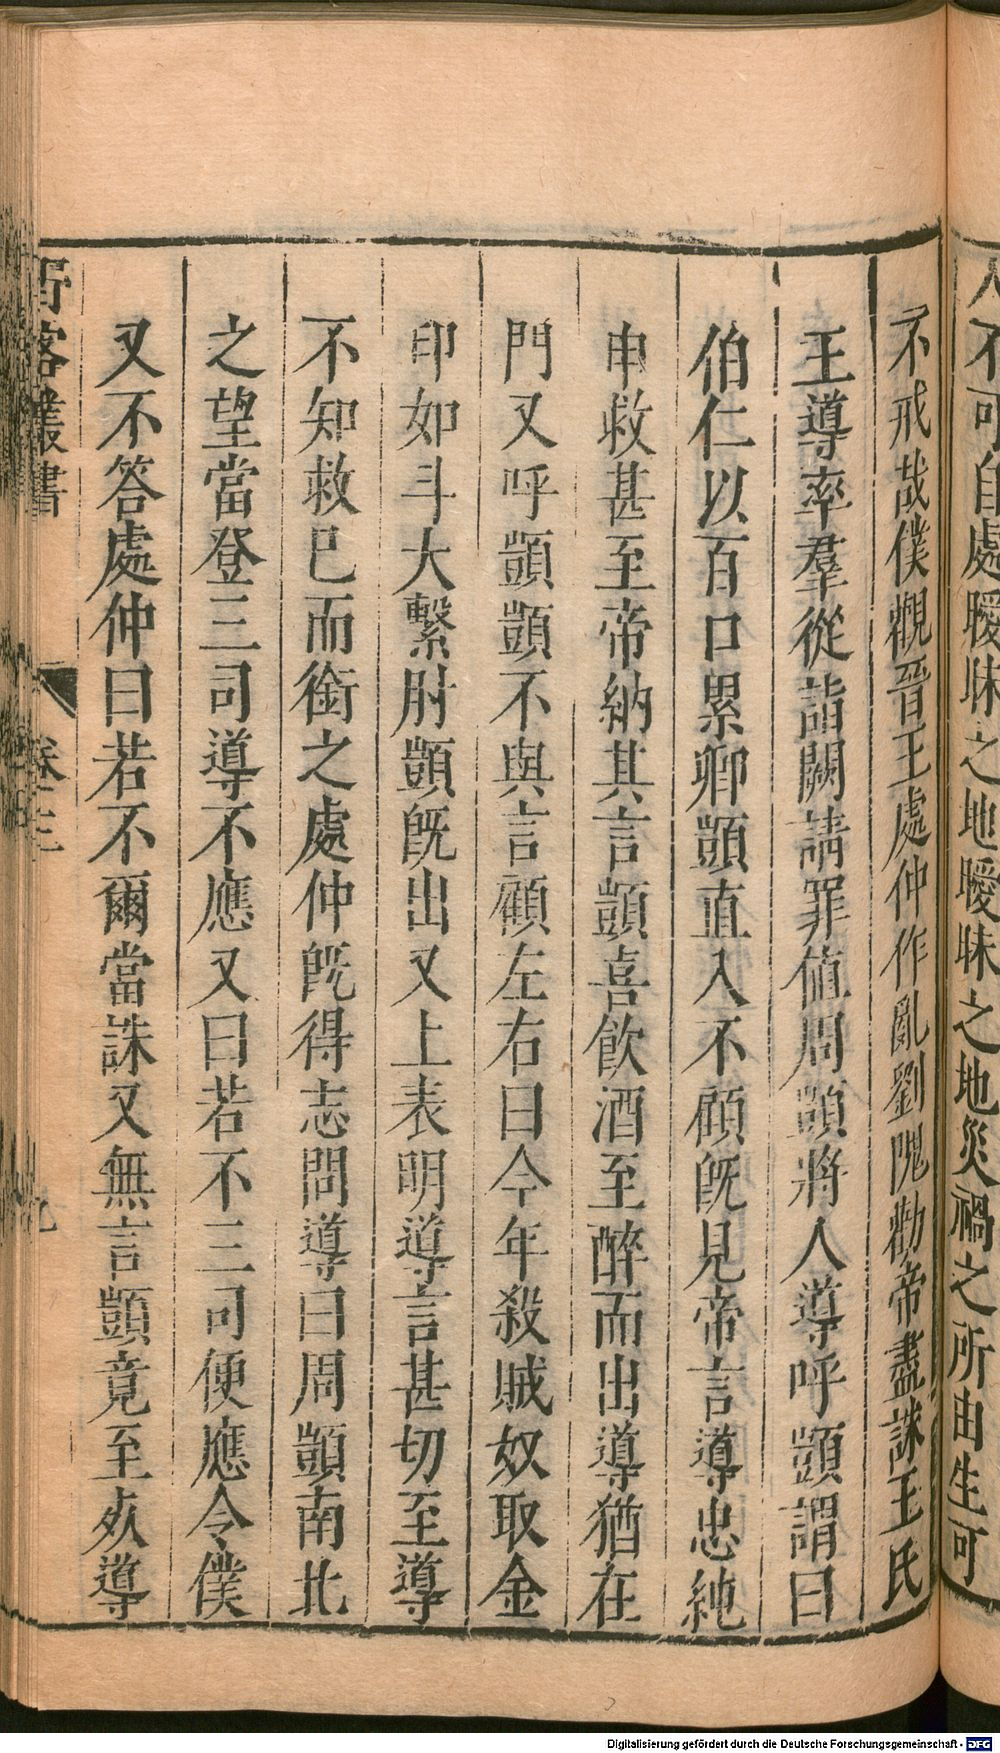 人不可自處曖昧之地曖昧之地災禍之所由生可
不戒哉僕觀晉王處仲作亂劉隗勸帝盡誅王氏
王導率羣從詣闕請罪値周顗將人導呼顗謂曰
伯仁以百口累卿顗直入不顧旣見帝言導忠純
申救甚至帝納其言顗喜飲酒至醉而出導猶在
門又呼顗顗不與言顧左右曰今年殺賊奴取金
印如斗大繫肘顗旣出又上表明導言甚切至導
不知救已而銜之處仲旣得志問導曰周顗南北
之望當登三司導不應又曰若不三司便應令僕
又不答處仲曰若不爾當誅又無言顗竟至死導
野客叢書
卷十三
九
Digitalisierung gefördert durch die Deutsche Forschungsgemeinschaft - DFG